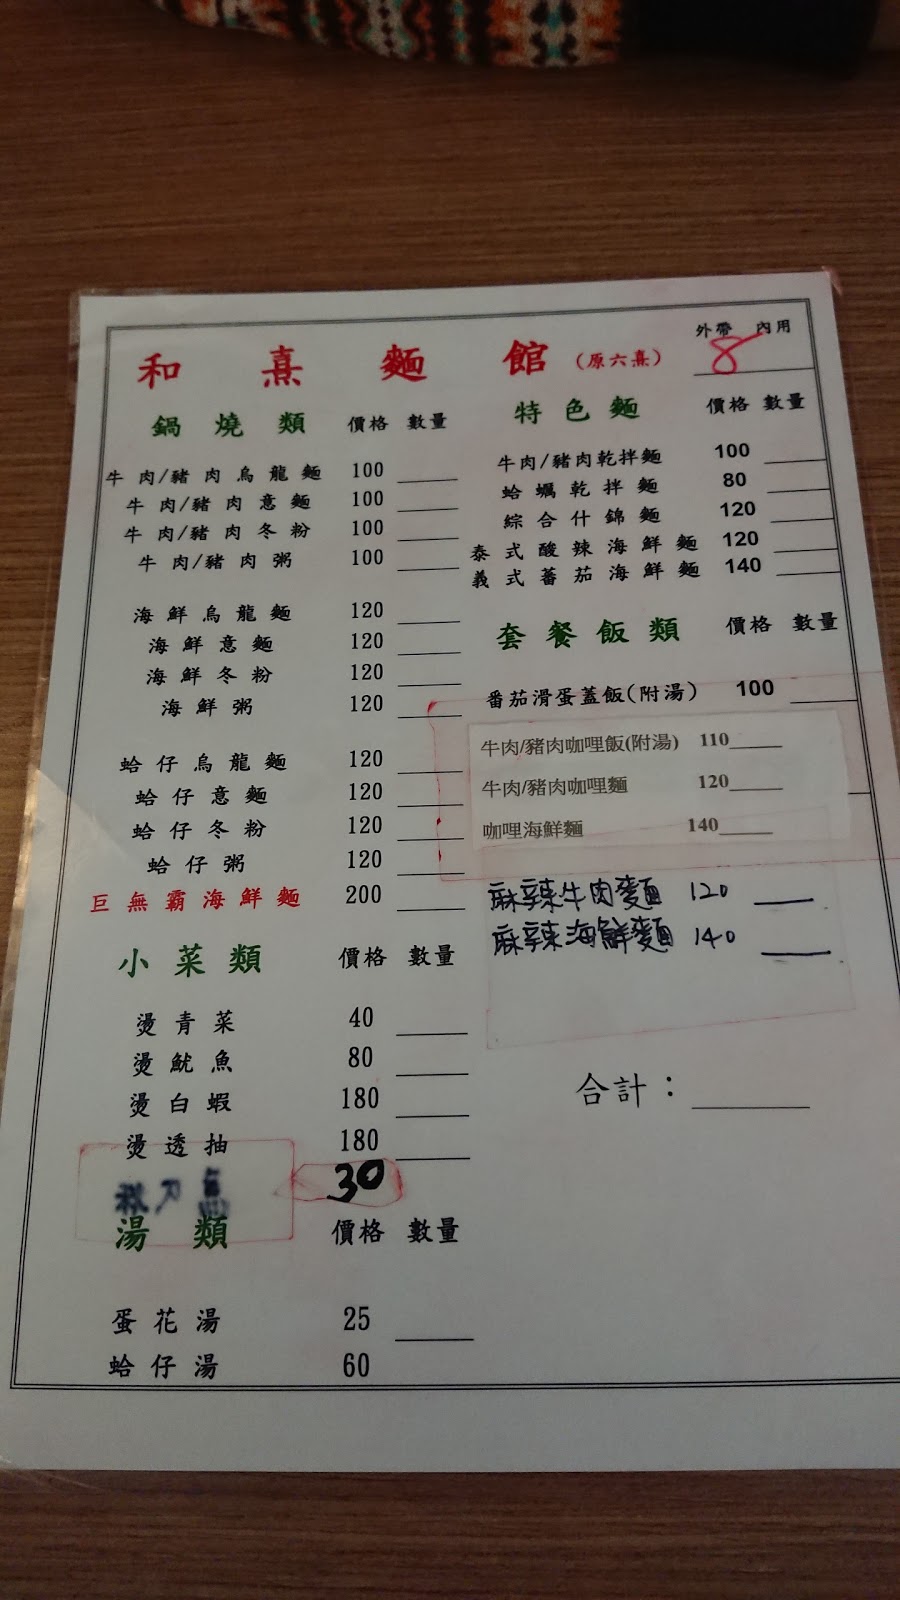 外帶 內用
8
和熹麵館(原六熹)
鍋燒類 價格 數量
牛肉/豬肉烏龍麵 100
牛肉/豬肉意麵 100
牛肉/豬肉冬粉 100
牛肉/豬肉粥 100
海鮮烏龍麵 120
海鮮意麵 120
海鮮冬粉 120
海鮮粥 120
蛤仔烏龍麵 120
蛤仔意麵 120
蛤仔冬粉 120
蛤仔粥 120
巨無霸海鮮麵 200
小菜類 價格 數量
燙青菜 40
燙魷魚 80
燙白蝦 180
燙透抽 180
30
湯類 價格 數量
蛋花湯 25
蛤仔湯 60
特色麵 價格 數量
牛肉/豬肉乾拌麵 100
蛤蠣乾拌麵 80
綜合什錦麵 120
泰式酸辣海鮮麵 120
義式蕃茄海鮮麵 140
套餐飯類 價格 數量
番茄滑蛋蓋飯(附湯) 100
牛肉/豬肉咖哩飯(附湯) 110
牛肉/豬肉咖哩麵 120
咖哩海鮮麵 140
麻辣牛肉麵 120
麻辣海鮮麵 140
合計：